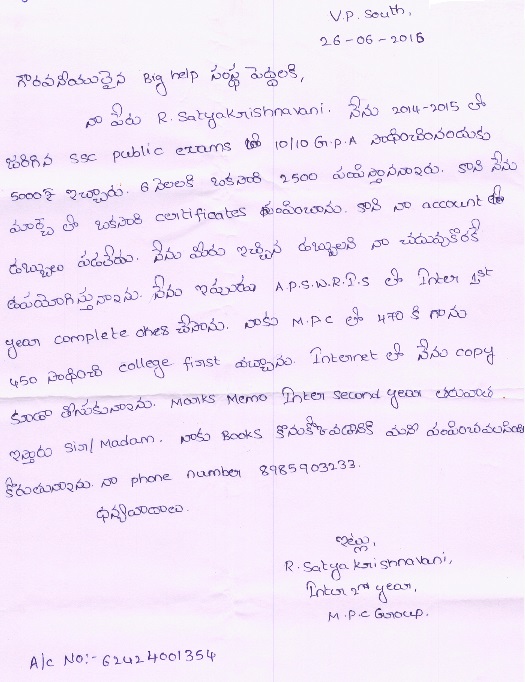 V.P. South,
26-06-2016
గౌరవనీయులైన Big help సంస్థ పెద్దలకి,
నా పేరు R. Satyakrishnavani. నేను 2014-2015 లో
జరిగిన SSC public exams లో 10/10 G.P.A సాధించినందుకు
5000₹ ఇచ్చారు. 6 నెలలకి ఒకసారి 2500 పంపిస్తానన్నారు. కాని నేను
మార్చి లో ఒకసారి certificates పంపించాను. కాని నా account లో
డబ్బులు పడలేదు. నేను మీరు ఇచ్చిన డబ్బులని నా చదువుకొరకే
ఉపయోగిస్తున్నాను. నేను ఇప్పుడు A.P.S.W.R.I.S లో Inter 1st
year complete చేసాను. నాకు M.P.C లో 470 కి గాను
450 సాధించి college first వచ్చాను. Internet లో నేను copy
కూడా తీసుకున్నాను. Marks Memo Inter second year తరువాత
ఇస్తారు Sir/Madam. నాకు Books కొనుకోవడానికి మనీ పంపించవలసిందిగా
కోరుతున్నాను. నా phone number 8985903233.
ధన్యవాదాలు.
ఇట్లు,
R. Satya krishnavani,
Inter 2nd year,
M.P.C Group.
A/c No:- 62424001354